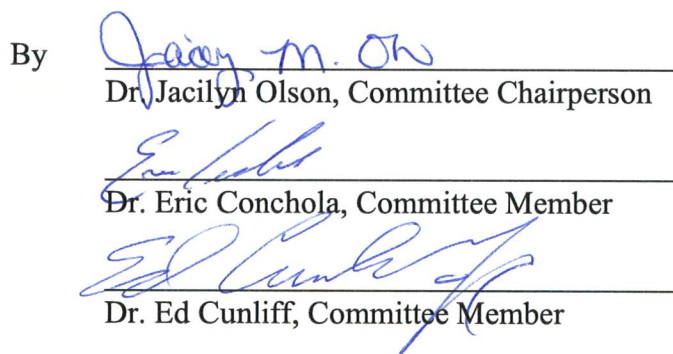 By Jaicey M. Ol
Dr. Jacilyn Olson, Committee Chairperson
Dr. Eric Conchola, Committee Member
Ed Cunliff
Dr. Ed Cunliff, Committee Member